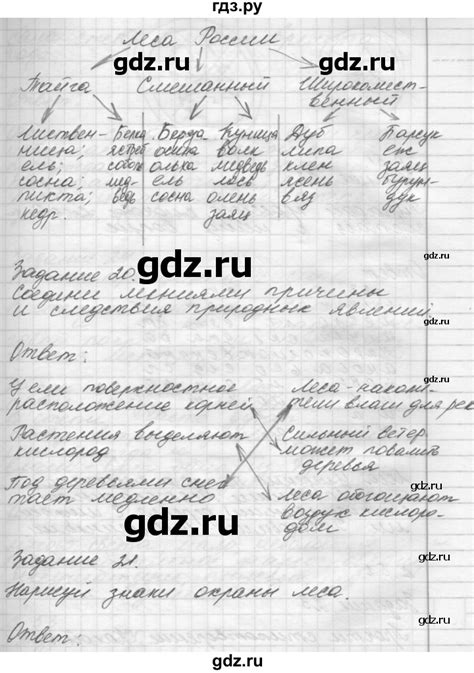 гдз.ру
Леса России
gdz.ru gdz.ru
Тайга Смешанный Широколист-
венный
Листвен- Белка Берёза Куница Дуб Барсук
ница; ястреб осина волк липа ёж
ель; соболь ольха медведь клён заяц
сосна; мед- ель лось ясень бурун-
пихта; ведь сосна олень вяз дук
кедр. заяц
Задание 20.
gdz.ru
Соедини линиями причины
и следствия природных явлений.
Ответ:
У ели поверхностное Леса-накопи-
расположение корней тели влаги для рек
Растения выделяют Сильный ветер
кислород может повалить
деревья
Под деревьями снег
тает медленно Леса обогащают
воздух кислоро-
дом
gdz.ru gdz.ru
Задание 21.
Нарисуй знаки охраны леса.
Ответ:
gdz.ru